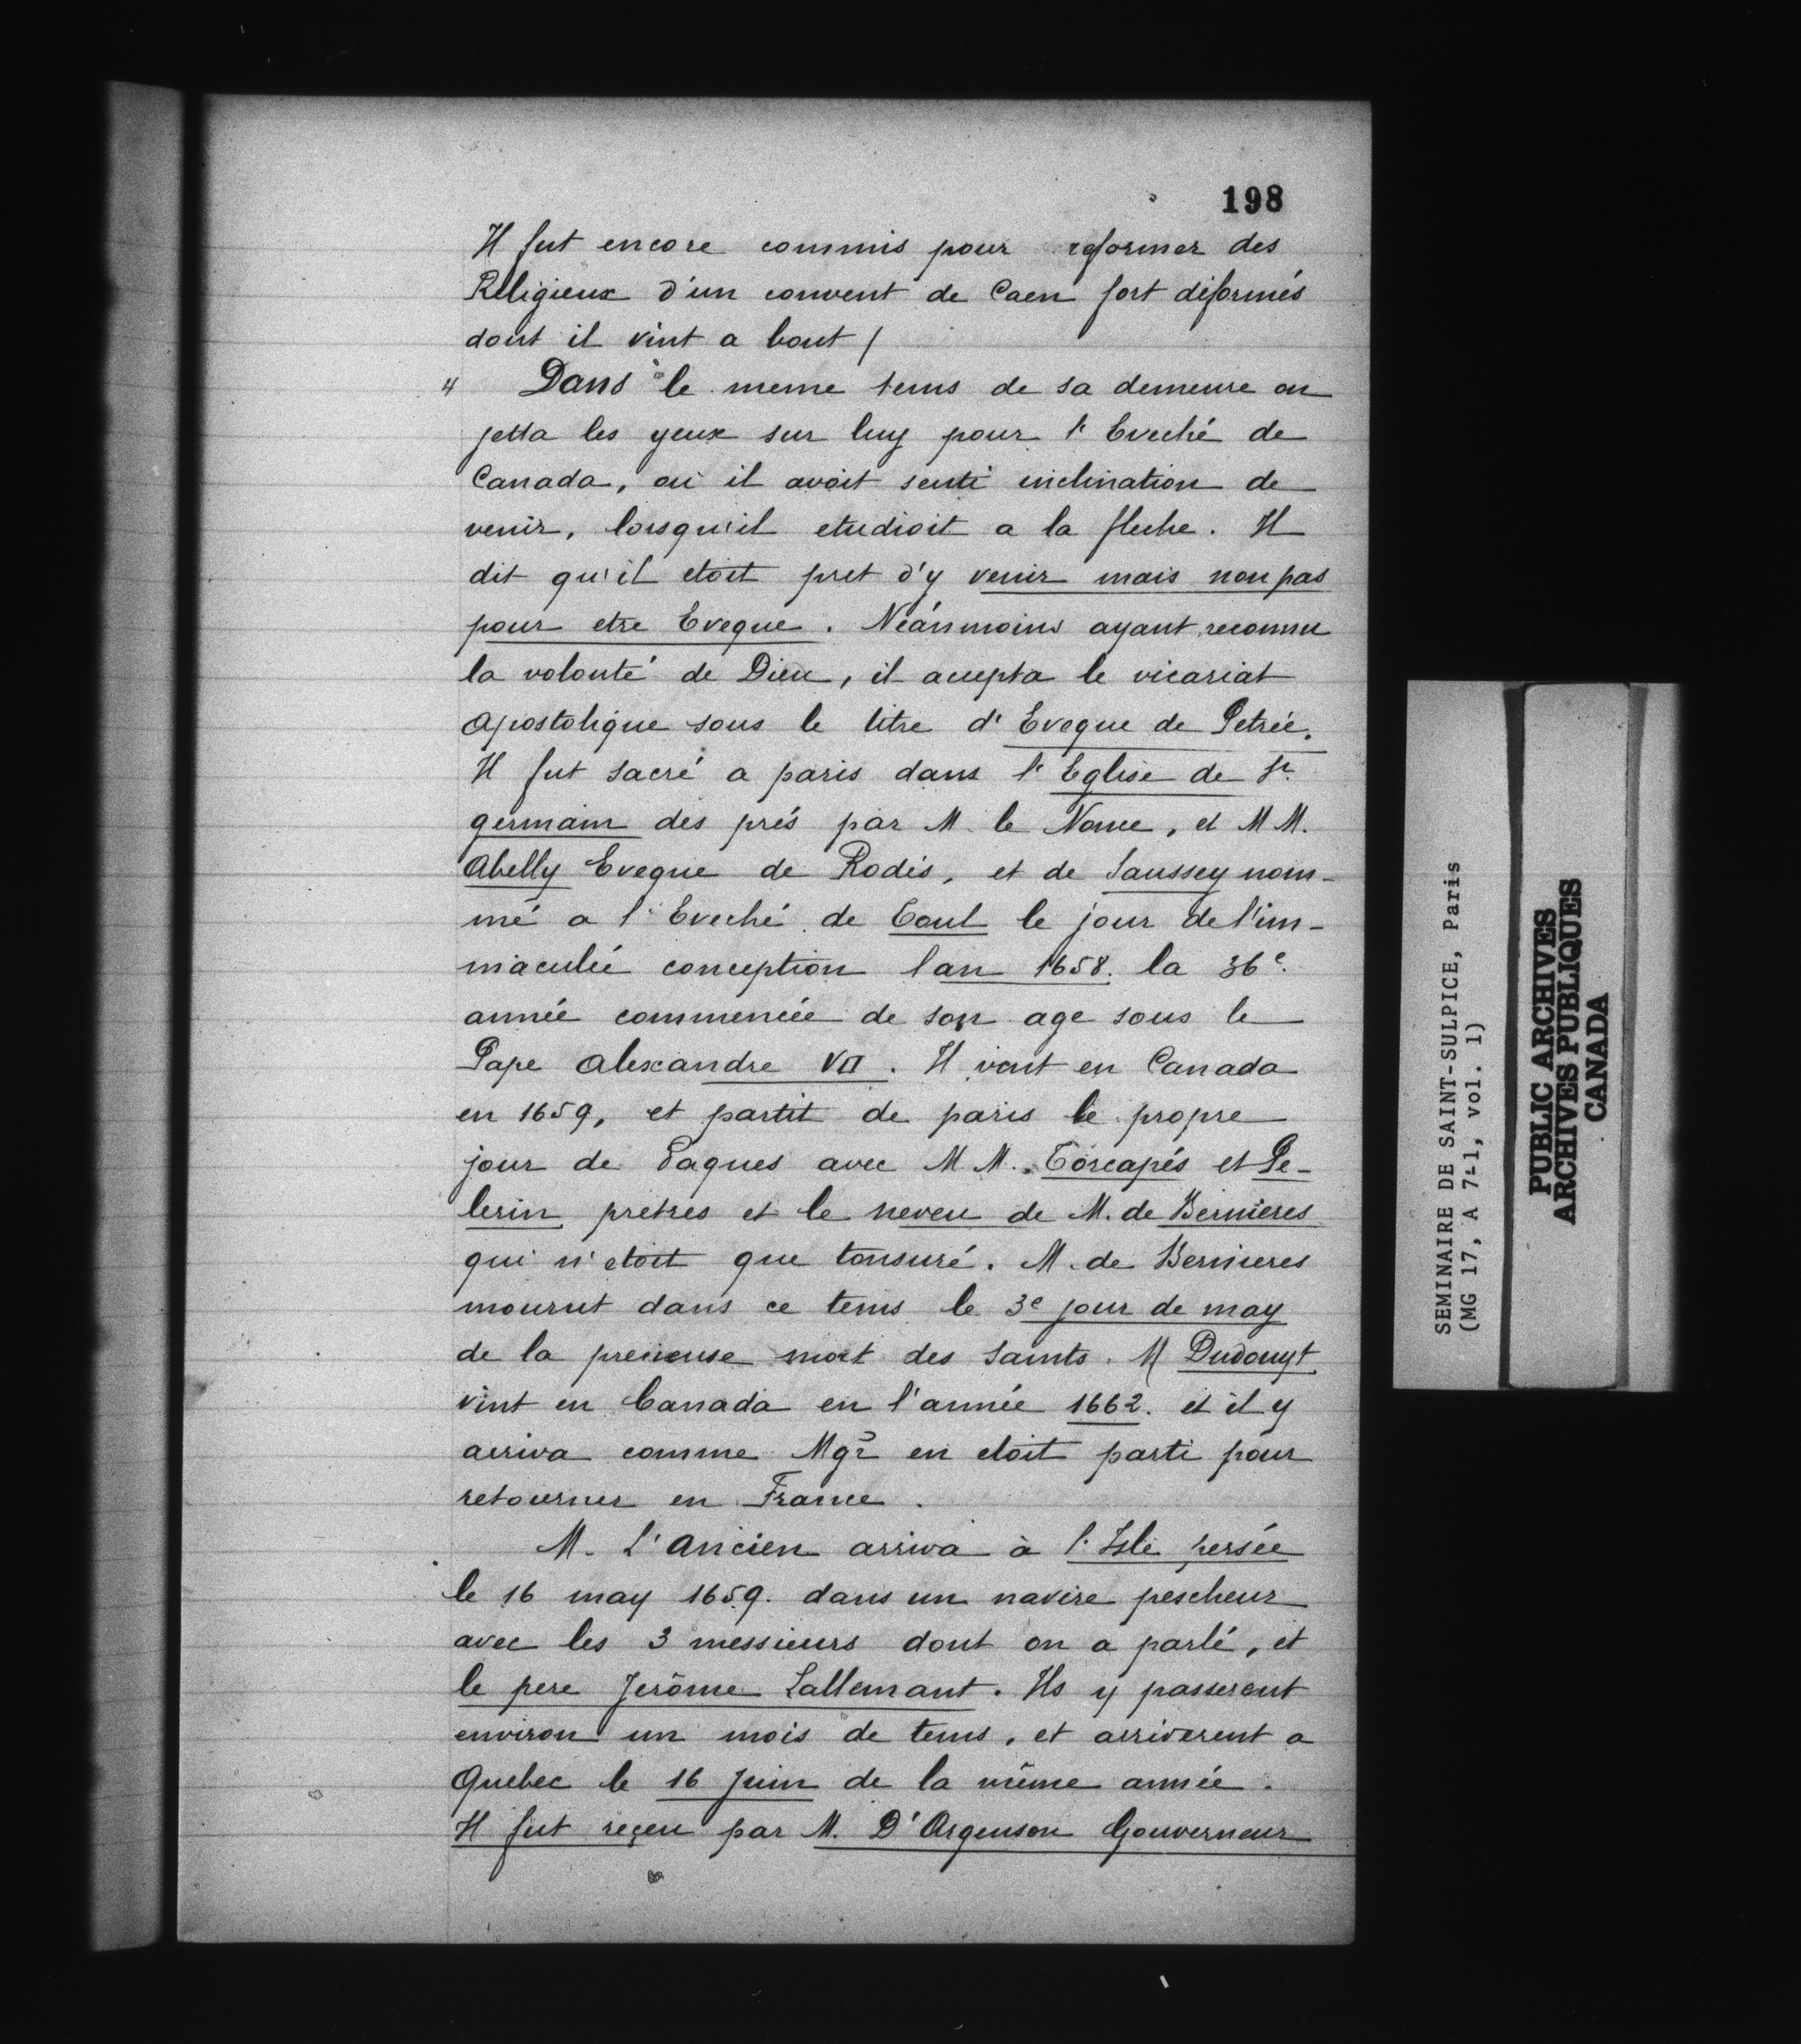 198
Il fut encore commis pour reformer des
Religieux d'un convent de Caen fort déformés
dont il vint a bout /
4 Dans le meme tems de sa demeure on
jetta les yeux sur luy pour l'Eveché de
Canada, ou il avoit senti inclination de
venir, lorsqu'il etudioit a la fleche. Il
dit qu'il etoit pret d'y venir mais non pas
pour etre Eveque. Néanmoins ayant reconnu
la volonté de Dieu, il accepta le vicariat
apostolique sous le titre d'Eveque de Petrée.
Il fut sacré a paris dans l'Eglise de St
germain des prés par M. le Nonce, et MM.
Abelly Eveque de Rodés, et de Saussey nom-
mé a l'Eveché de Toul le jour de l'im-
maculée conception lan 1658. la 36e.
année commencée de son age sous le
Pape alexandre VII. Il vint en Canada
en 1659, et partit de paris le propre
jour de Paques avec MM. Torcapés et Pe-
lerin pretres et le neveu de M. de Bernieres
qui n'etoit que tonsuré. M. de Bernieres
mourut dans ce tems le 3e jour de may
de la precieuse mort des saints. M Dudouyt
vint en Canada en l'année 1662. et il y
arriva comme Mgr en etoit parti pour
retourner en France.
M. L'ancien arriva à l'Isle persée
le 16 may 1659. dans un navire pescheur
avec les 3 messieurs dont on a parlé, et
le pere Jerôme Lallemant. Ils y passerent
environ un mois de tems, et arriverent a
Quebec le 16 Juin de la même année.
Il fut reçeu par M. D'Argenson Gouverneur
SEMINAIRE DE SAINT-SULPICE, Paris
(MG 17, A 7-1, vol. 1)
PUBLIC ARCHIVES
ARCHIVES PUBLIQUES
CANADA